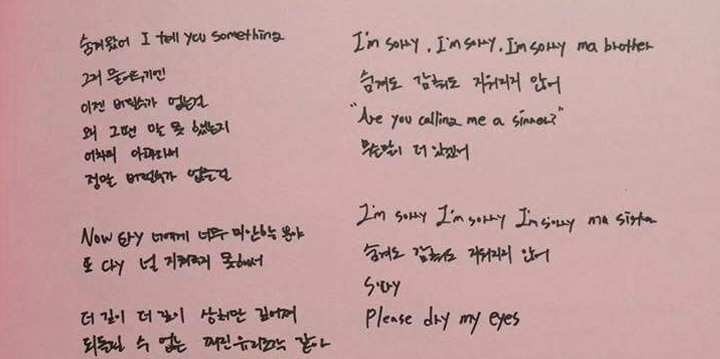 숨겨왔어 I tell you something
그저 묻어두기엔
이젠 버틸수가 없는걸
왜 그땐 말 못 했는지
어차피 아파와서
정말 버틸수가 없을걸
Now cry 너에게 너무 미안할 뿐야
또 cry 널 지켜주지 못해서
더 깊이 더 깊이 상처만 깊어져
되돌릴 수 없는 깨진 유리조각 같아
I'm sorry, I'm sorry, I'm sorry ma brother
숨겨도 감춰도 지워지지 않어
"Are you calling me a sinner?"
무슨말이 더 있겠어
I'm sorry I'm sorry I'm sorry ma sister
숨겨도 감춰도 지워지지 않어
Please dry my eyes